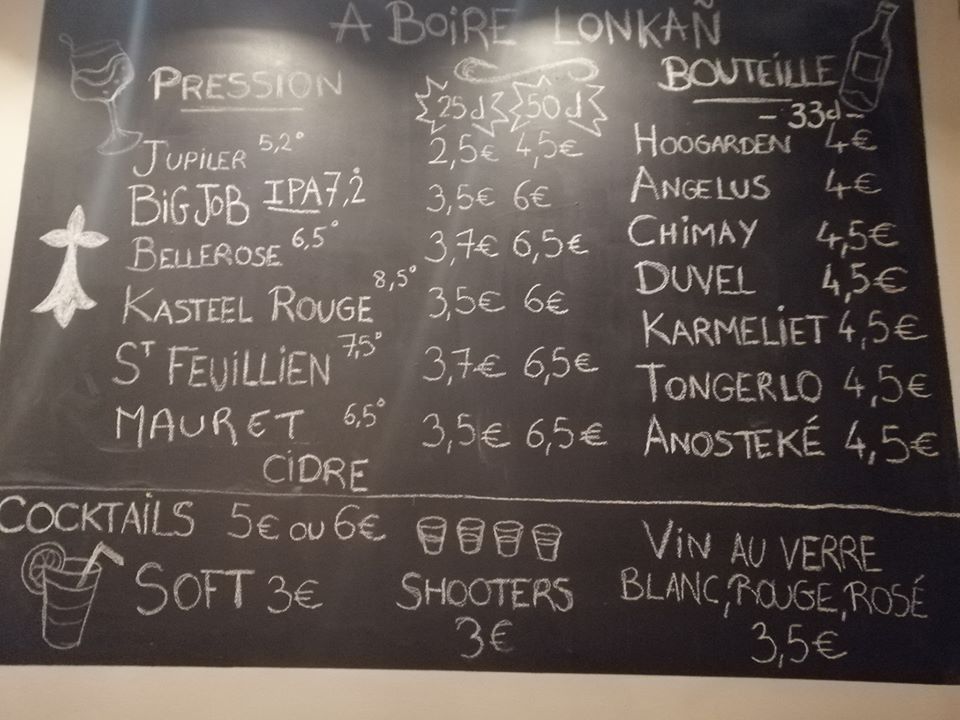 A BOIRE LONKAÑ
PRESSION 25d 50d
JUPILER 5,2° 2,5€ 4,5€
BIG JOB IPA 7,2° 3,5€ 6€
BELLEROSE 6,5° 3,7€ 6,5€
KASTEEL ROUGE 8,5° 3,5€ 6€
ST FEUILLIEN 7,5° 3,7€ 6,5€
MAURET 6,5° 3,5€ 6,5€
CIDRE
BOUTEILLE
- 33d -
HOOGARDEN 4€
ANGELUS 4€
CHIMAY 4,5€
DUVEL 4,5€
KARMELIET 4,5€
TONGERLO 4,5€
ANOSTEKÉ 4,5€
COCKTAILS 5€ OU 6€
SOFT 3€
SHOOTERS
3€
VIN AU VERRE
BLANC, ROUGE, ROSÉ
3,5€